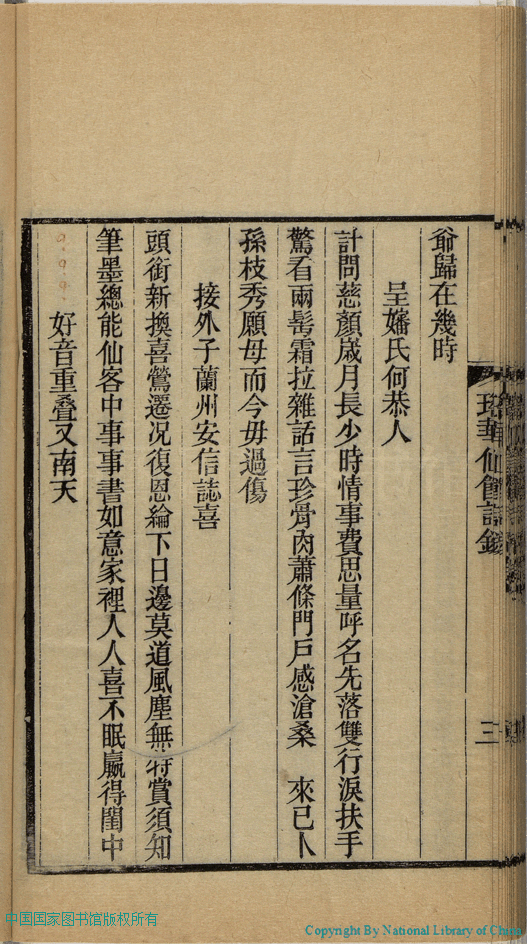 爺歸在幾時
呈嬸氏何恭人
計問慈顏歲月長少時情事費思量呼名先落雙行淚扶手
驚看兩髩霜拉雜話言珍骨肉蕭條門戶感滄桑 來已卜
孫枝秀願毋而今毋過傷
接外子蘭州安信誌喜
頭銜新換喜鶯遷况復恩綸下日邊莫道風塵無特賞須知
筆墨總能仙客中事事書如意家裡人人喜不眠贏得閨中
好音重叠又南天
華仙館詩錄
三
中国国家图书馆版权所有
Copyright By National Library of China